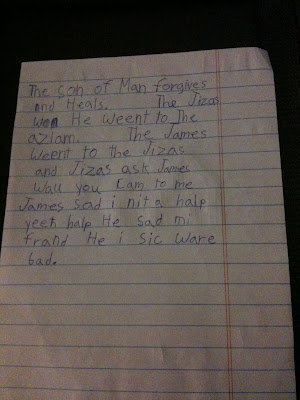 The Son of Man forgives
and Heals. The Jizas
Won He Weent to The
azlam. The James
Weent to the Jizas
and Jizas ask James
Wou you Cam to me
James Sad i nit a halp
yeet halp He Sad mi
frand He i Sic Ware
bad.